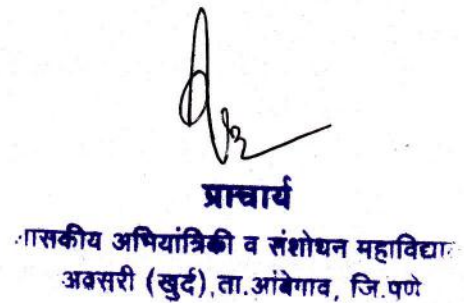 प्राचार्य
ासकीय अभियांत्रिकी व संशोधन महाविद्या
अवसरी (खुर्द),ता.आंबेगाव, जि.पुणे